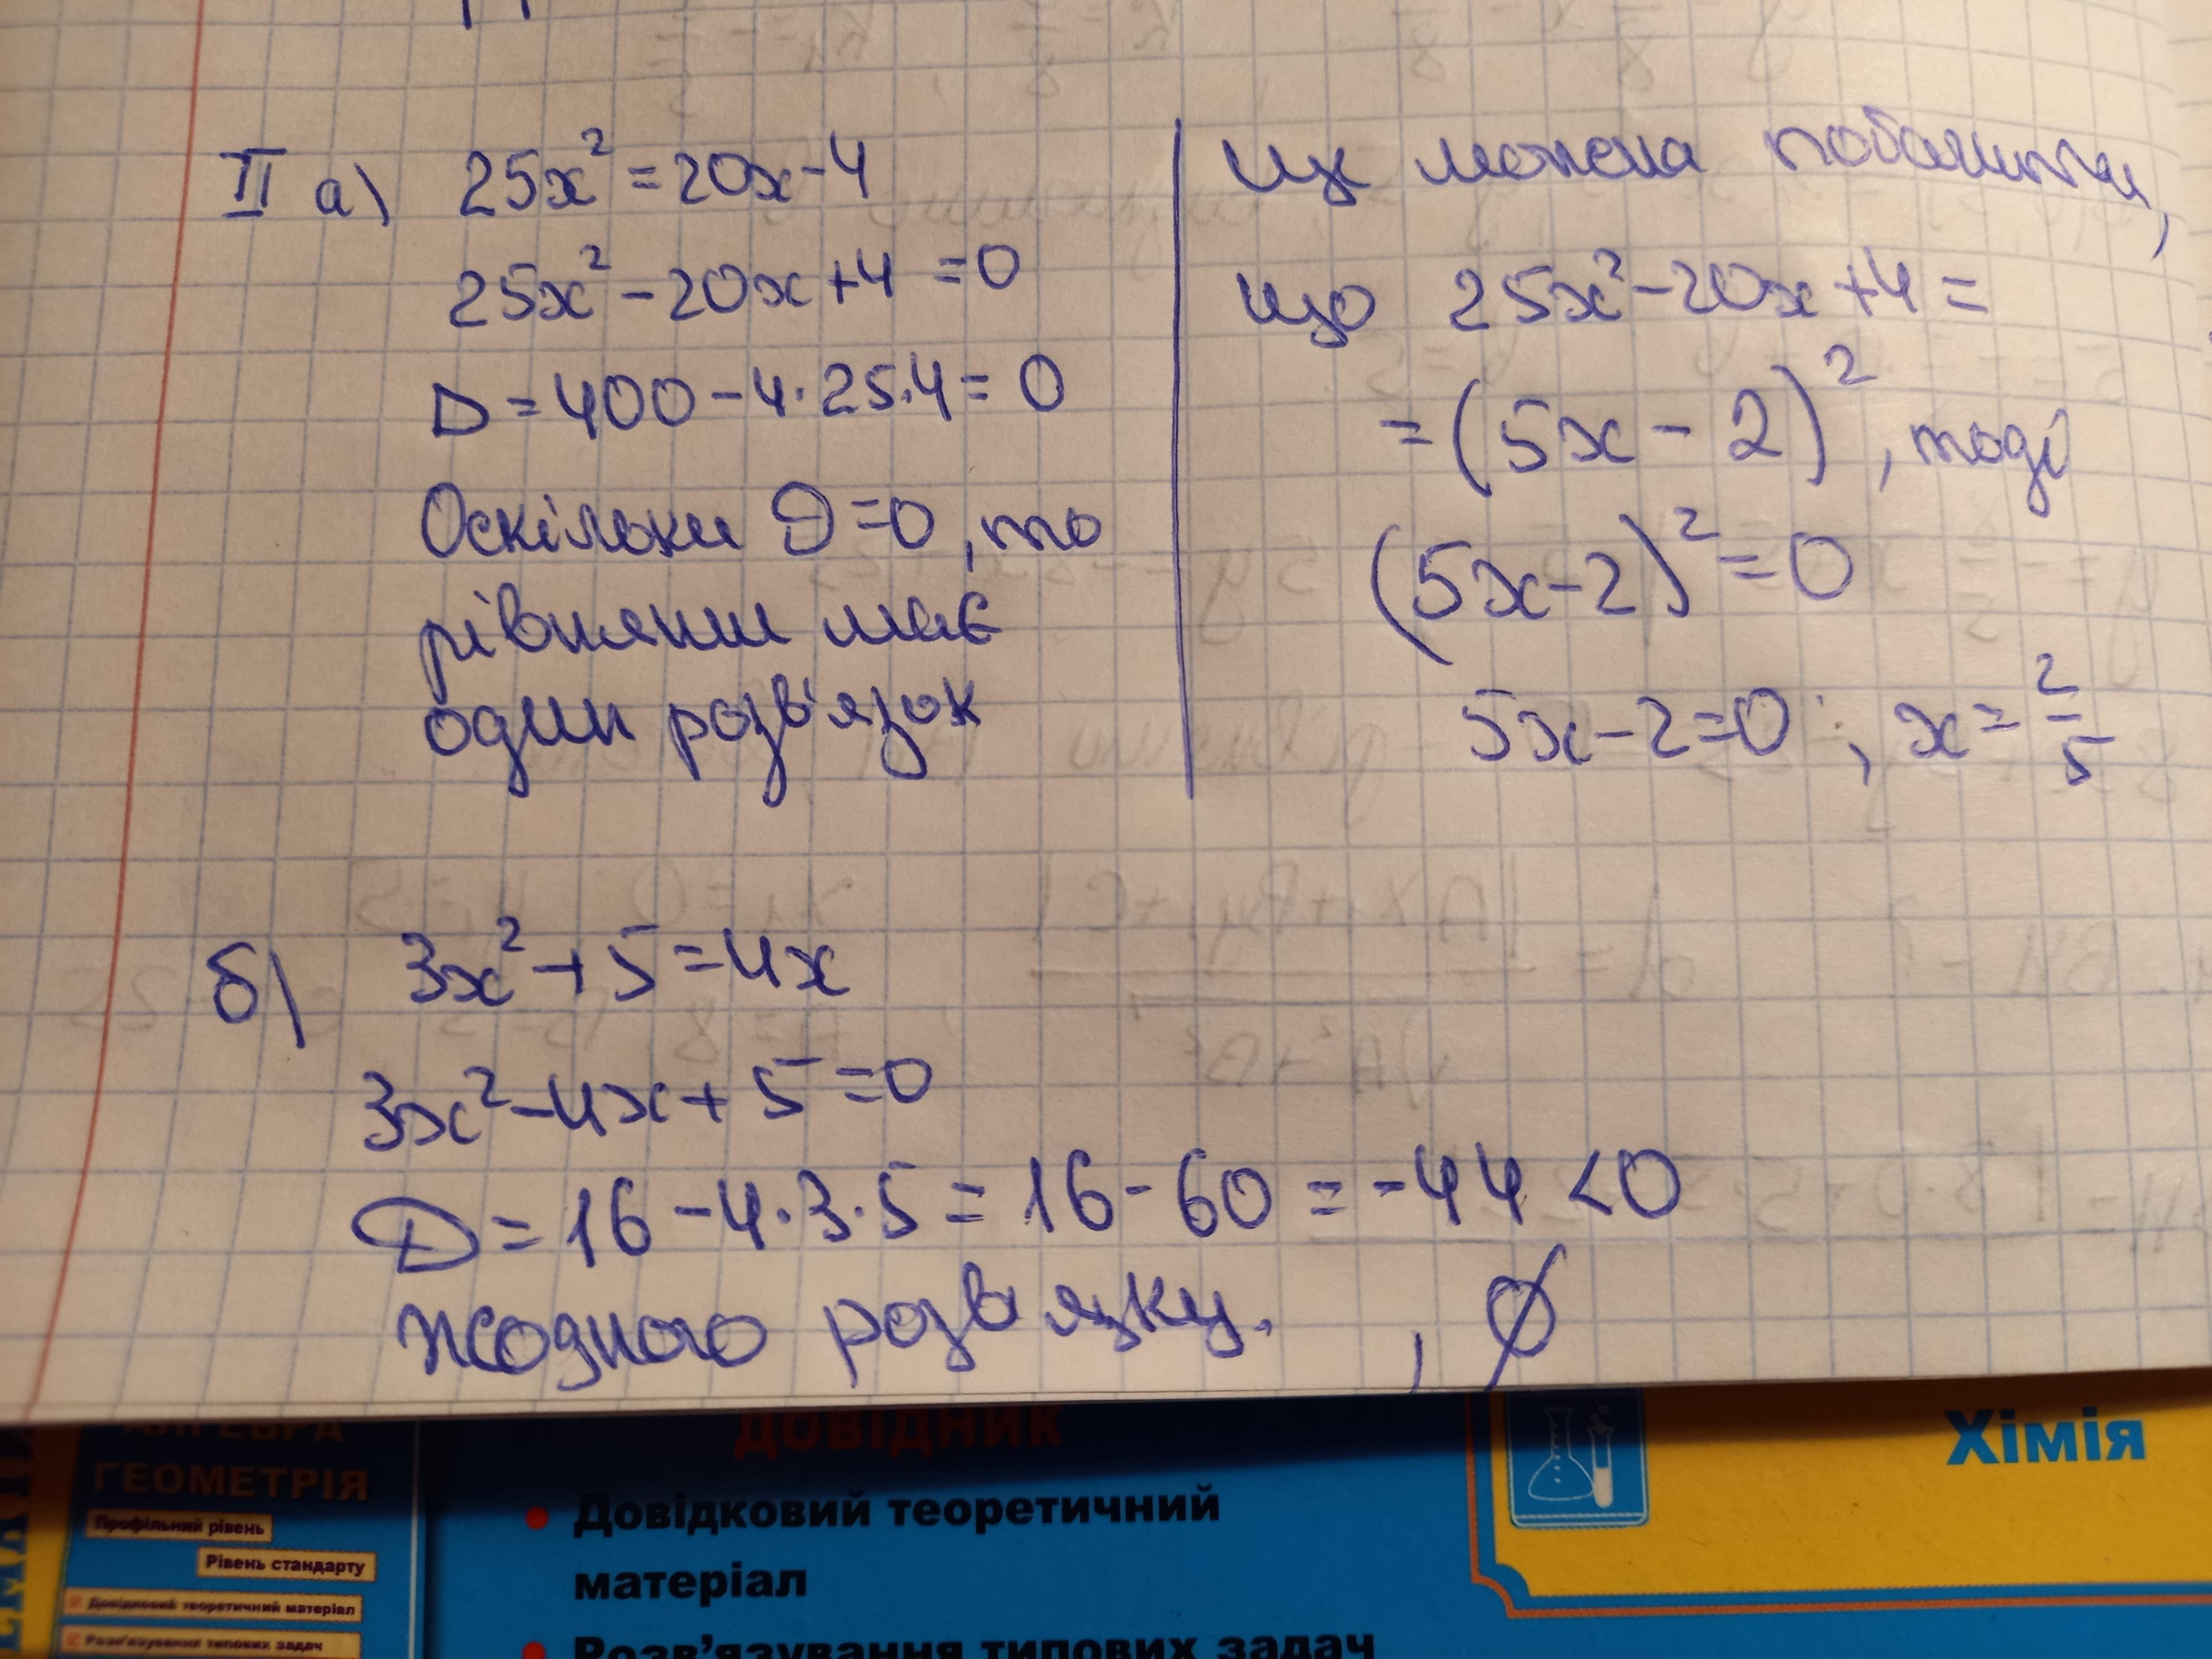 II а) 25x² = 20x - 4
25x² - 20x + 4 = 0
D = 400 - 4·25·4 = 0
Оскільки D = 0, то
рівняння має
один розв'язок
можна побачити,
що 25x² - 20x + 4 =
= (5x - 2)², тоді
(5x - 2)² = 0
5x - 2 = 0; x = 2/5
б) 3x² + 5 = 4x
3x² - 4x + 5 = 0
D = 16 - 4·3·5 = 16 - 60 = -44 < 0
жодного розв'язку. , ∅
АЛГЕБРА
ГЕОМЕТРІЯ
Профільний рівень
Рівень стандарту
Довідковий теоретичний матеріал
Розв'язування типових задач
ДОВІДНИК
• Довідковий теоретичний
матеріал
• Розв'язування типових задач
Хімія